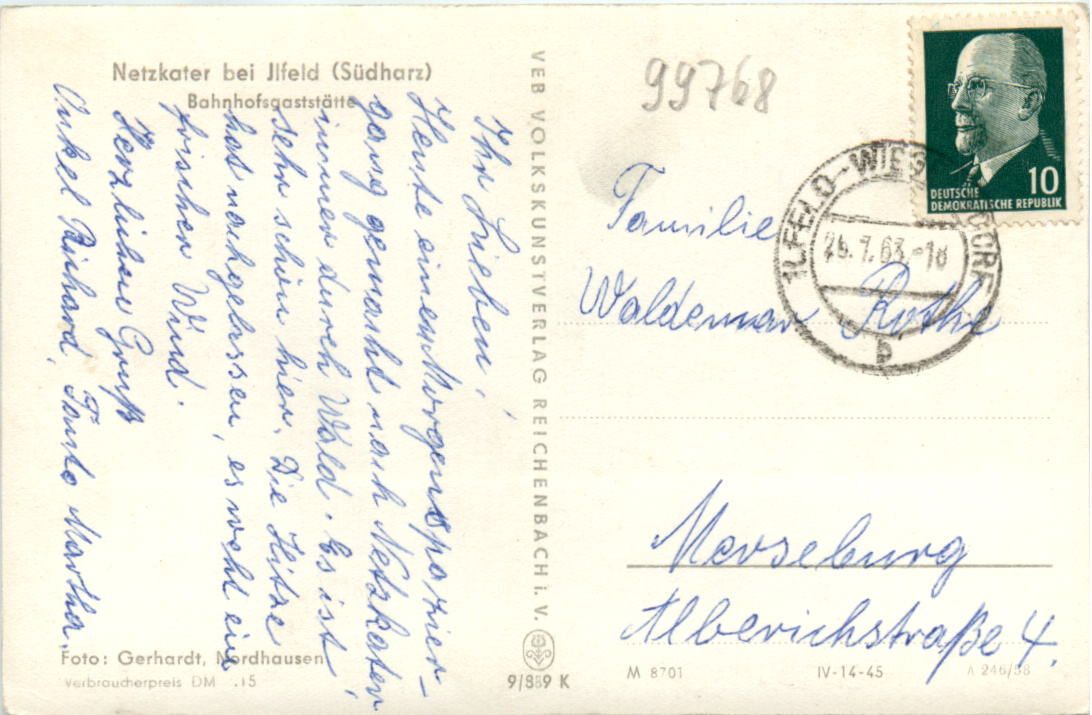 Netzkater bei Jlfeld (Südharz)
Bahnhofsgaststätte
Ihr Lieben!
Heute einen Morgenspazier-
gang gemacht nach Netzkater
immer durch Wald. Es ist
sehr schön hier. Die Hitze
hat nachgelassen, es weht ein
frischer Wind.
Herzlichen Gruß
Onkel Richard, Tante Martha.
Foto: Gerhardt, Nordhausen
Verbraucherpreis DM .15
VEB VOLKSKUNSTVERLAG REICHENBACH i. V.
9/889 K
99768
DEUTSCHE
DEMOKRATISCHE REPUBLIK
10
ILFELD-WIEGERSDORF
26.7.63.-18
b
Familie
Waldemar Rothe
Merseburg
Alberichstraße 4.
M 8701
IV-14-45
A 246/58